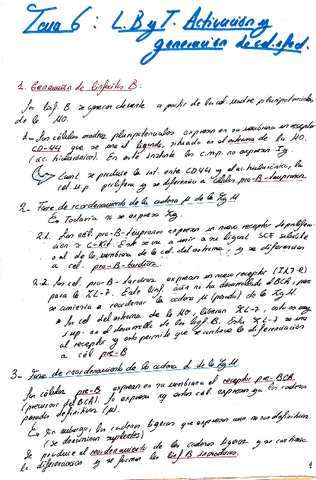 Tema 6: L.B y T. Activación y
generación de cél. efect.
1. Generación de linfocitos B:
Los linf. B se generan durante a partir de las cél. madre pluripotenciales
de la MO.
1- Las células madres pluripotenciales expresan en su membrana un receptor
CD-44 que se une al ligando, situado en el estroma de la MO.
(ác. hialurónico). En este instante las c.m.p. no expresan Ig.
Cuando se produce la int. entre CD44 y el ác. hialurónico, la
cél. m.p. prolifera y se diferencia a células pro-B-temprana.
2- Fase de reordenamiento de la cadena μ de la Ig M
En Todavía no se expresa Ig.
2.1. Las cél. pro-B-tempranas expresan un nuevo receptor de prolifera-
ción C-Kit. Este se va a unir a su ligand SCF
al de la membrana de la cél. del estroma y se diferencian
a cél. pro-B-tardías.
2.2. Las cél. pro-B-tardías expresan un nuevo receptor (IL7-R)
para la IL-7. Este linf. aún no ha desarrollado el BCR, pero
se comienza a reordenar la cadena μ (pesada) de la Ig M.
* Las cél. del estroma de la MO, liberan IL-7, este es muy
imp. en el desarrollo de los linf. B. Esta IL-7 se une
al receptor y esto permite que se continúe la diferenciación
a cél pre-B
3- Fase de reordenamiento de la cadena de la Ig M.
Las células pre-B expresan en su membrana el receptor pre-BCR
(precursor del BCR). Lo expresa ya estas cél. expresan ya las cadenas
pesadas definitivas (μ).
En Sin embargo, las cadenas ligeras que expresan no son definitivas
(se denominan suplentes)
Se produce el reordenamiento de las cadenas ligeras y se continúa
la diferenciación y se forman los linf B inmaduros.
1